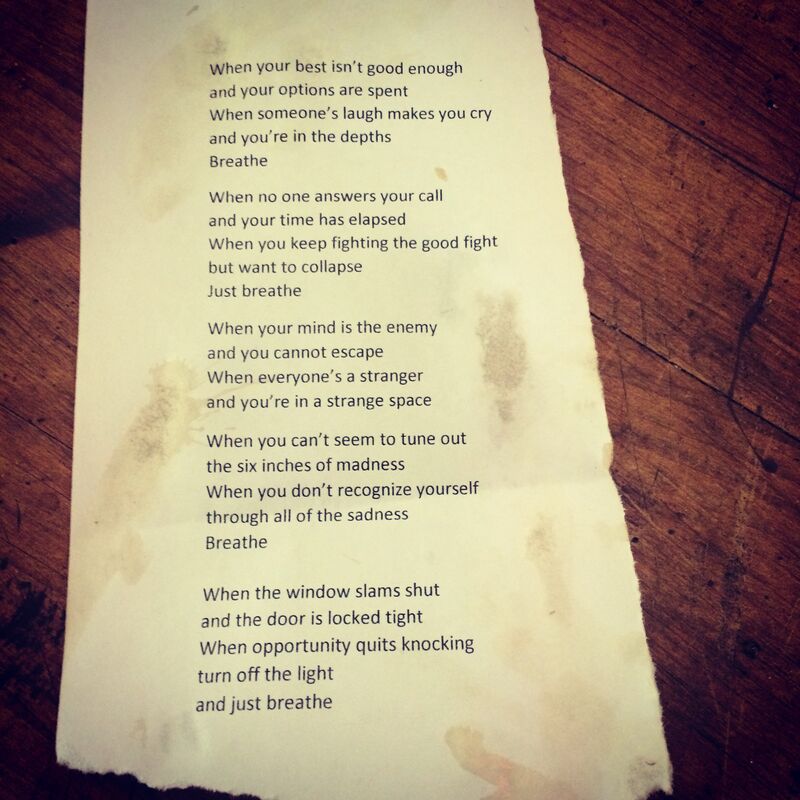 When your best isn't good enough
and your options are spent
When someone's laugh makes you cry
and you're in the depths
Breathe
When no one answers your call
and your time has elapsed
When you keep fighting the good fight
but want to collapse
Just breathe
When your mind is the enemy
and you cannot escape
When everyone's a stranger
and you're in a strange space
When you can't seem to tune out
the six inches of madness
When you don't recognize yourself
through all of the sadness
Breathe
When the window slams shut
and the door is locked tight
When opportunity quits knocking
turn off the light
and just breathe